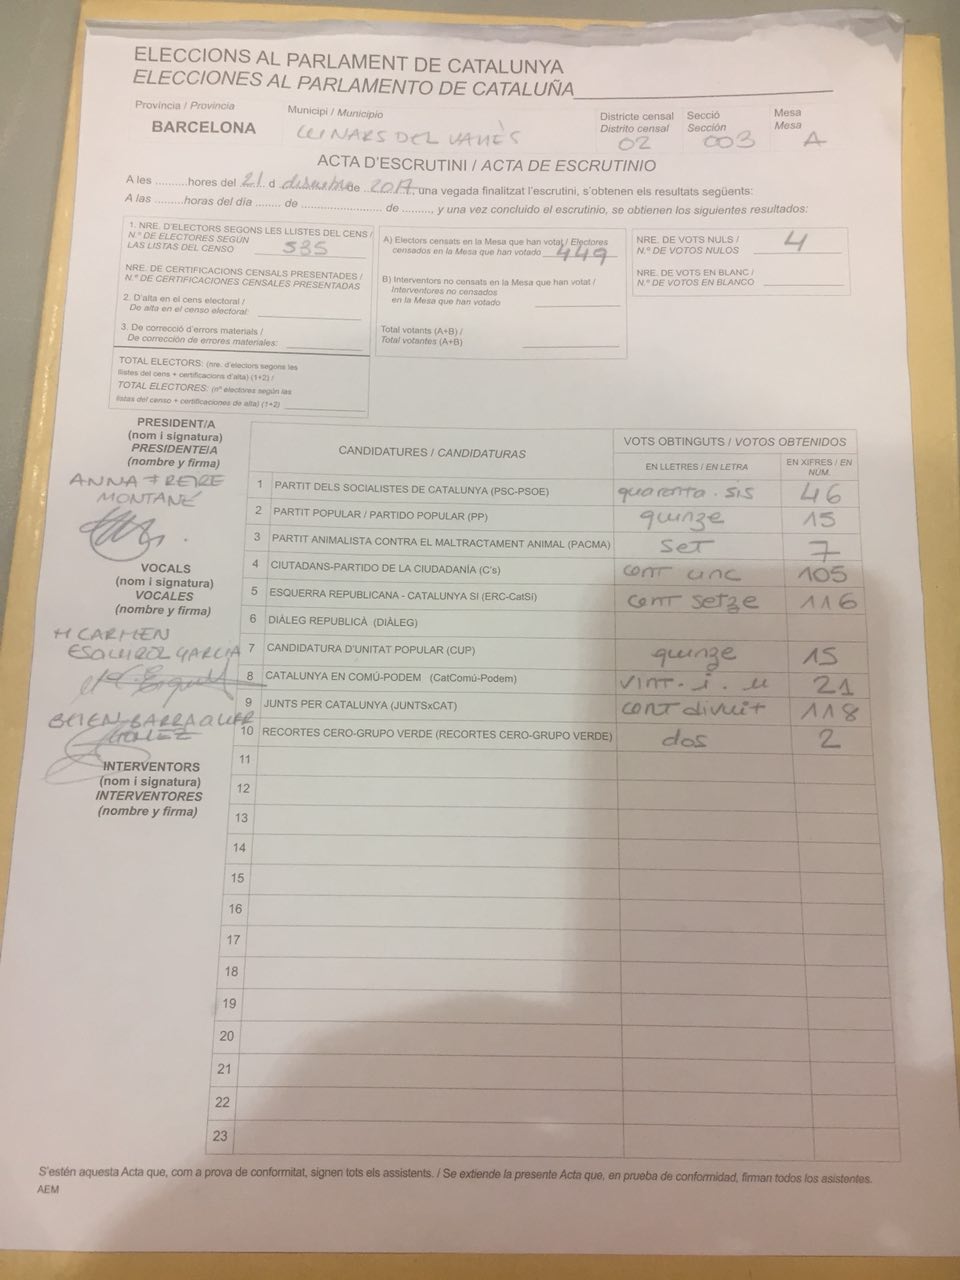 ELECCIONS AL PARLAMENT DE CATALUNYA
ELECCIONES AL PARLAMENTO DE CATALUÑA
Província / Provincia
BARCELONA
Municipi / Municipio
LLINARS DEL VALLÈS
Districte censal
Distrito censal
02
Secció
Sección
003
Mesa
Mesa
A
ACTA D'ESCRUTINI / ACTA DE ESCRUTINIO
A les ..........hores del 21 d desembre de 2017, una vegada finalitzat l'escrutini, s'obtenen els resultats següents:
A las ..........horas del día ........ de .............................. de ........, y una vez concluido el escrutinio, se obtienen los siguientes resultados:
1. NRE. D'ELECTORS SEGONS LES LLISTES DEL CENS /
N.º DE ELECTORES SEGÚN
LAS LISTAS DEL CENSO 535
NRE. DE CERTIFICACIONS CENSALS PRESENTADES /
N.º DE CERTIFICACIONES CENSALES PRESENTADAS
2. D'alta en el cens electoral /
De alta en el censo electoral:
3. De correcció d'errors materials /
De corrección de errores materiales:
TOTAL ELECTORS: (nre. d'electors segons les
llistes del cens + certificacions d'alta) (1+2) /
TOTAL ELECTORES: (nº electores según las
listas del censo + certificaciones de alta) (1+2)
A) Electors censats en la Mesa que han votat / Electores
censados en la Mesa que han votado 449
B) Interventors no censats en la Mesa que han votat /
Interventores no censados
en la Mesa que han votado
Total votants (A+B) /
Total votantes (A+B)
NRE. DE VOTS NULS /
N.º DE VOTOS NULOS 4
NRE. DE VOTS EN BLANC /
N.º DE VOTOS EN BLANCO
PRESIDENT/A
(nom i signatura)
PRESIDENTE/A
(nombre y firma)
ANNA FREIRE
MONTANÉ
VOCALS
(nom i signatura)
VOCALES
(nombre y firma)
M CARMEN
ESQUIROL GARCIA
BELEN BARRAQUER
GÓMEZ
INTERVENTORS
(nom i signatura)
INTERVENTORES
(nombre y firma)
CANDIDATURES / CANDIDATURAS
VOTS OBTINGUTS / VOTOS OBTENIDOS
EN LLETRES / EN LETRA
EN XIFRES / EN NÚM.
1 PARTIT DELS SOCIALISTES DE CATALUNYA (PSC-PSOE) quaranta-sis 46
2 PARTIT POPULAR / PARTIDO POPULAR (PP) quinze 15
3 PARTIT ANIMALISTA CONTRA EL MALTRACTAMENT ANIMAL (PACMA) set 7
4 CIUTADANS-PARTIDO DE LA CIUDADANÍA (C's) cent cinc 105
5 ESQUERRA REPUBLICANA - CATALUNYA SÍ (ERC-CatSí) cent setze 116
6 DIÀLEG REPUBLICÀ (DIÀLEG)
7 CANDIDATURA D'UNITAT POPULAR (CUP) quinze 15
8 CATALUNYA EN COMÚ-PODEM (CatComú-Podem) vint-i-u 21
9 JUNTS PER CATALUNYA (JUNTSxCAT) cent divuit 118
10 RECORTES CERO-GRUPO VERDE (RECORTES CERO-GRUPO VERDE) dos 2
11
12
13
14
15
16
17
18
19
20
21
22
23
S'estén aquesta Acta que, com a prova de conformitat, signen tots els assistents. / Se extiende la presente Acta que, en prueba de conformidad, firman todos los asistentes.
AEM